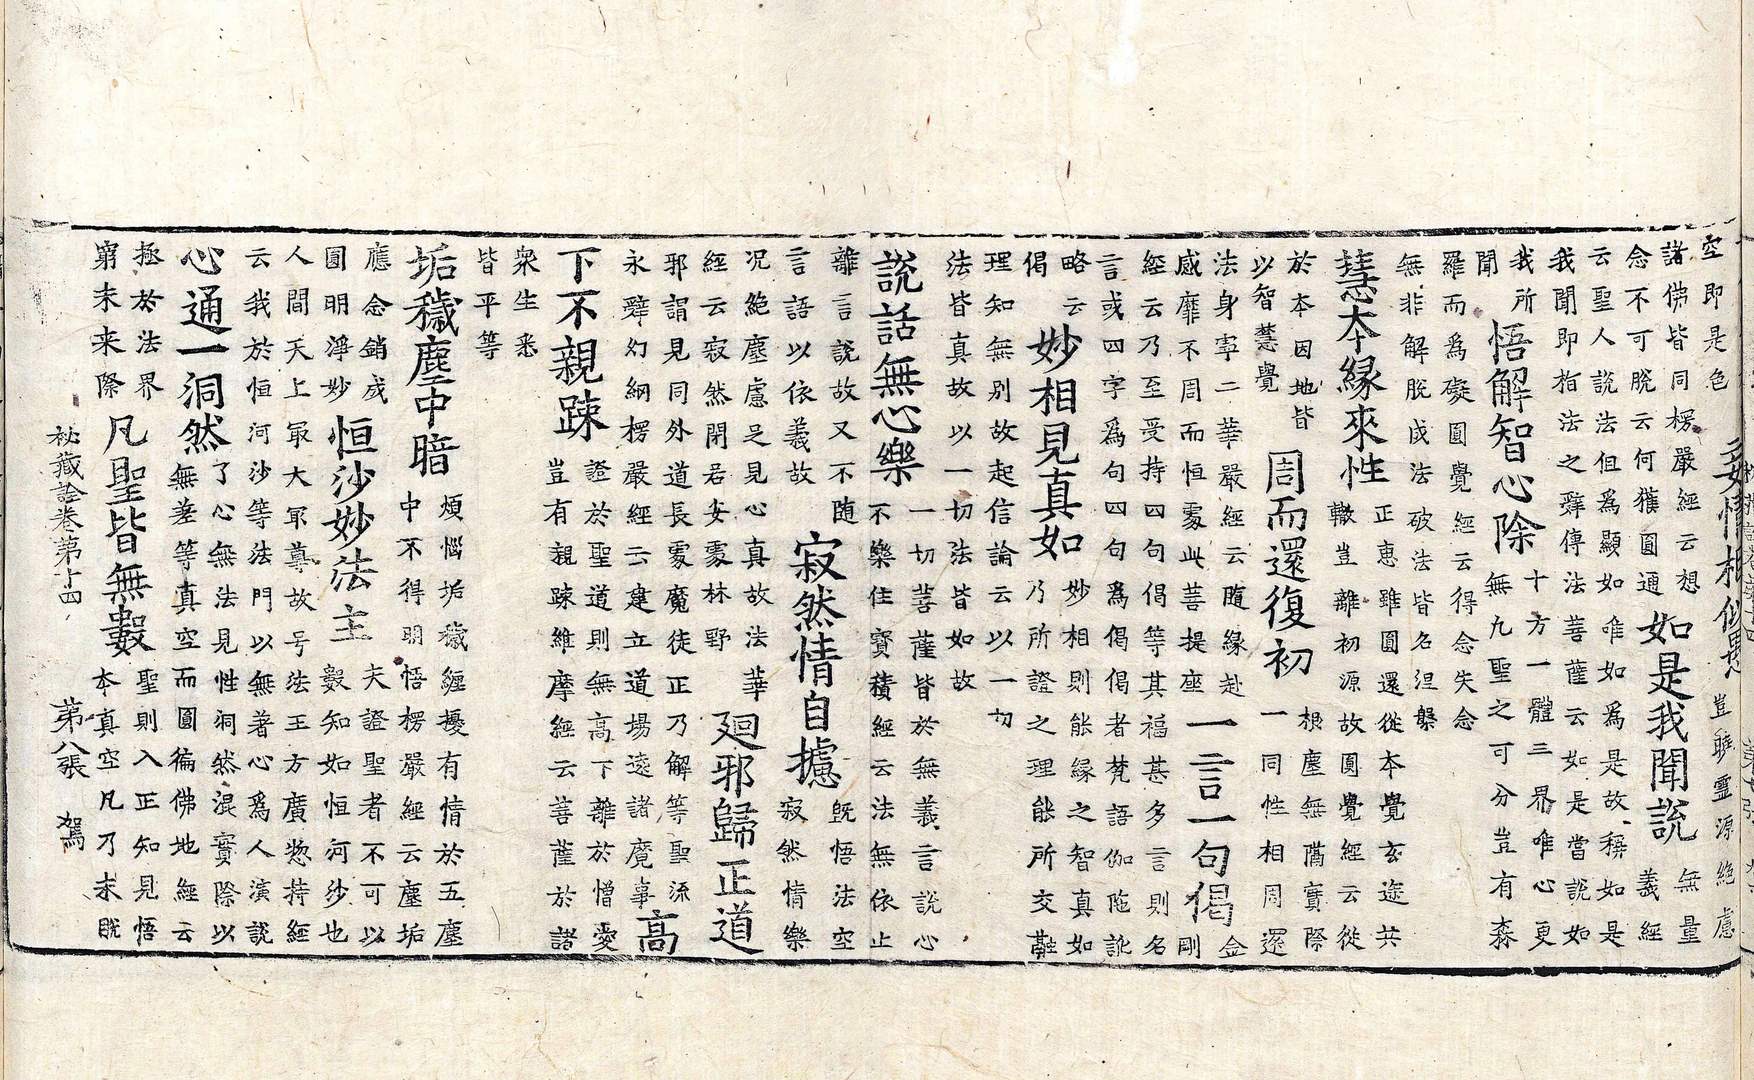 空即是色
豈曉靈源絕慮
諸佛皆同楞嚴經云想
念不可脫云何獲圓通
如是我聞說
無量
義經
云聖人說法但為顯如唯如為是故稱如是
我聞即指法之辭傳法菩薩云如是當說如
我所
聞
悟解智心除
十方一體三界唯心更
無九聖之可分豈有森
羅而爲礙圓覺經云得念失念
無非解脫成法破法皆名涅槃
慧本緣來性
正惠雖圓還從本覺玄迹共
轍豈離初源故圓覺經云從
於本因地皆
以智慧覺
周而還復初
根塵無隔實際
一同性相周還
法身寧二華嚴經云隨緣赴
感靡不周而恒處此菩提座
一言一句偈
金
剛
經云乃至受持四句偈等其福甚多言則名
言或四字爲句四句爲偈偈者梵語伽陁訛
略云
偈
妙相見真如
妙相則能緣之智真如
乃所證之理能所交
理知無別故起信論云以一切
法皆真故以一切法皆如故
說話無心樂
一切菩薩皆於無義言說心
不樂住寶積經云法無依止
離言說故又不隨
言語以依義故
寂然情自攄
旣悟法空
寂然情樂
況絕塵慮足見心真故法華
經云寂然閑居安處林野
廻邪歸正道
邪謂見同外道長處魔徒正乃解等聖流
永辭幻網楞嚴經云建立道場遠諸魔事
高
下不親踈
證於聖道則無高下離於憎愛
豈有親踈維摩經云菩薩於諸
衆生悉
皆平等
垢穢塵中暗
煩惱垢穢纏擾有情於五塵
中不得明悟楞嚴經云塵垢
應念銷成
圓明淨妙
恒沙妙法主
夫證聖者不可以
數知如恒河沙也
人間天上最大最尊故号法王方廣惣持經
云我於恒河沙等法門以無著心爲人演說
心通一洞然
了心無法見性洞然混實際以
無差等真空而圓徧佛地經云
極於法界
窮未來際
凡聖皆無數
聖則入正知見悟
本真空凡乃未旣
秘藏詮卷第十四 第八張 駕